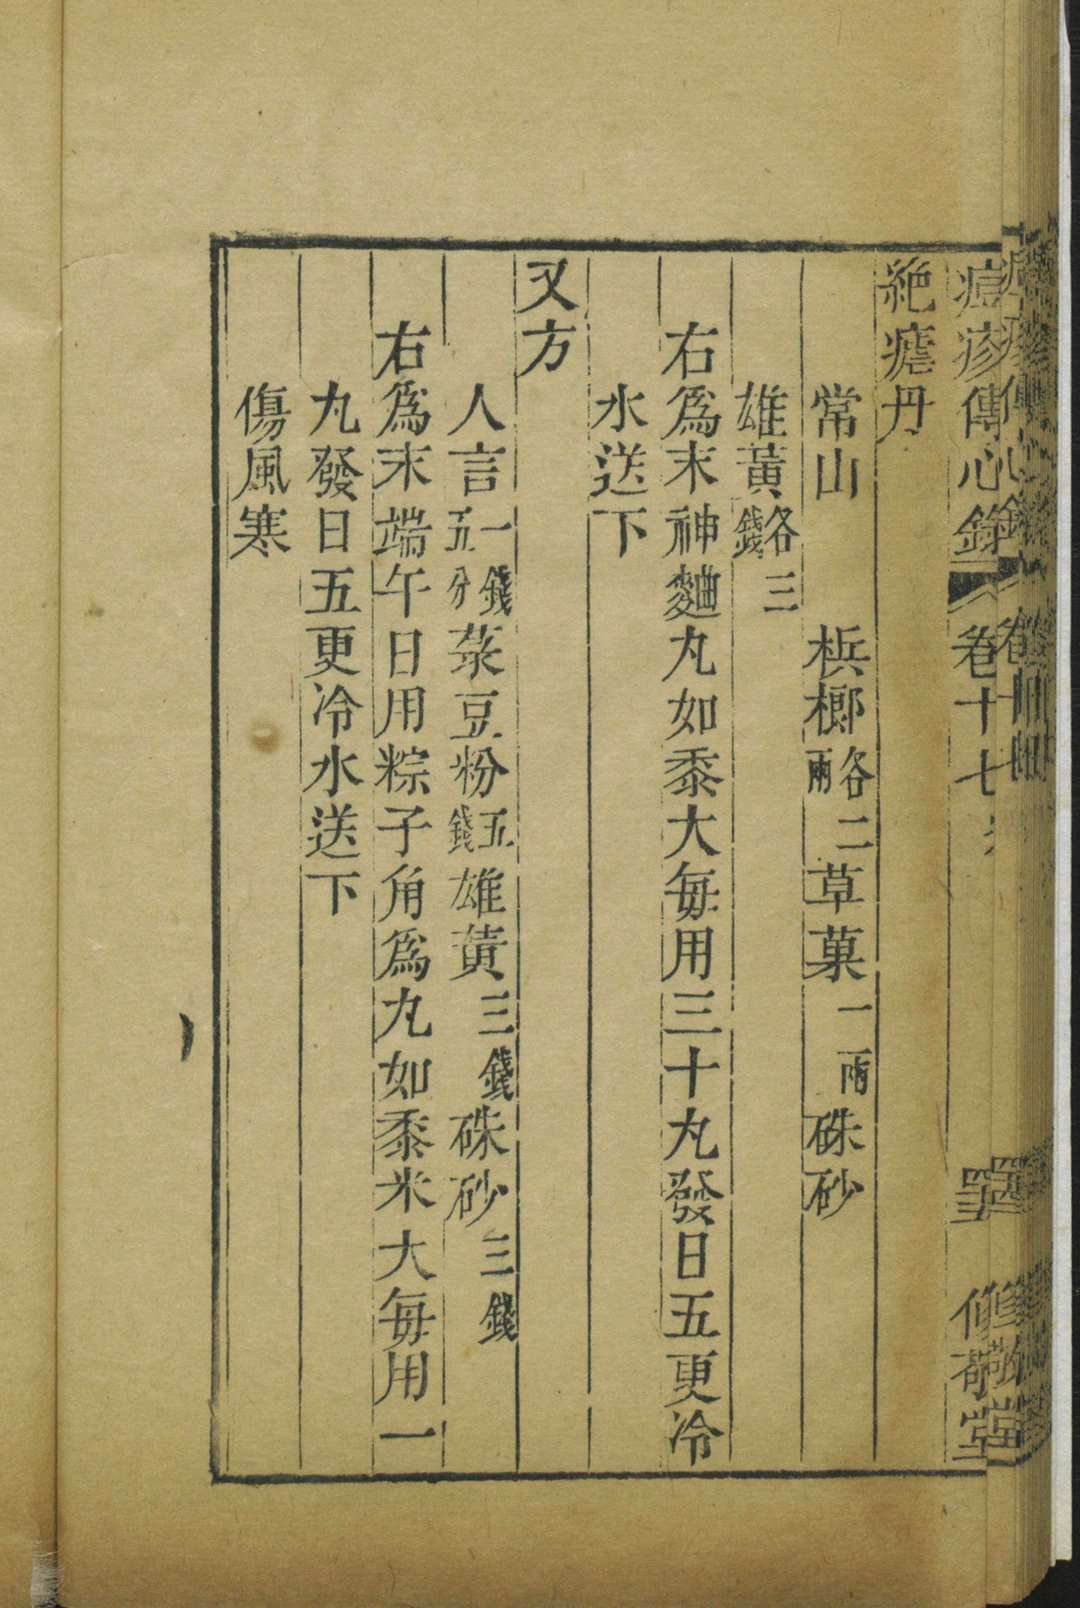 痘疹傳心錄 卷十七
修敬堂
絶瘧丹
常山 梹榔各二兩 草菓一兩 硃砂
雄黃各三錢
右爲末神麯丸如黍大每用三十丸發日五更冷
水送下
又方
人言一錢五分 菉豆粉五錢 雄黃三錢 硃砂三錢
右爲末端午日用粽子角爲丸如黍米大每用一
丸發日五更冷水送下
傷風寒